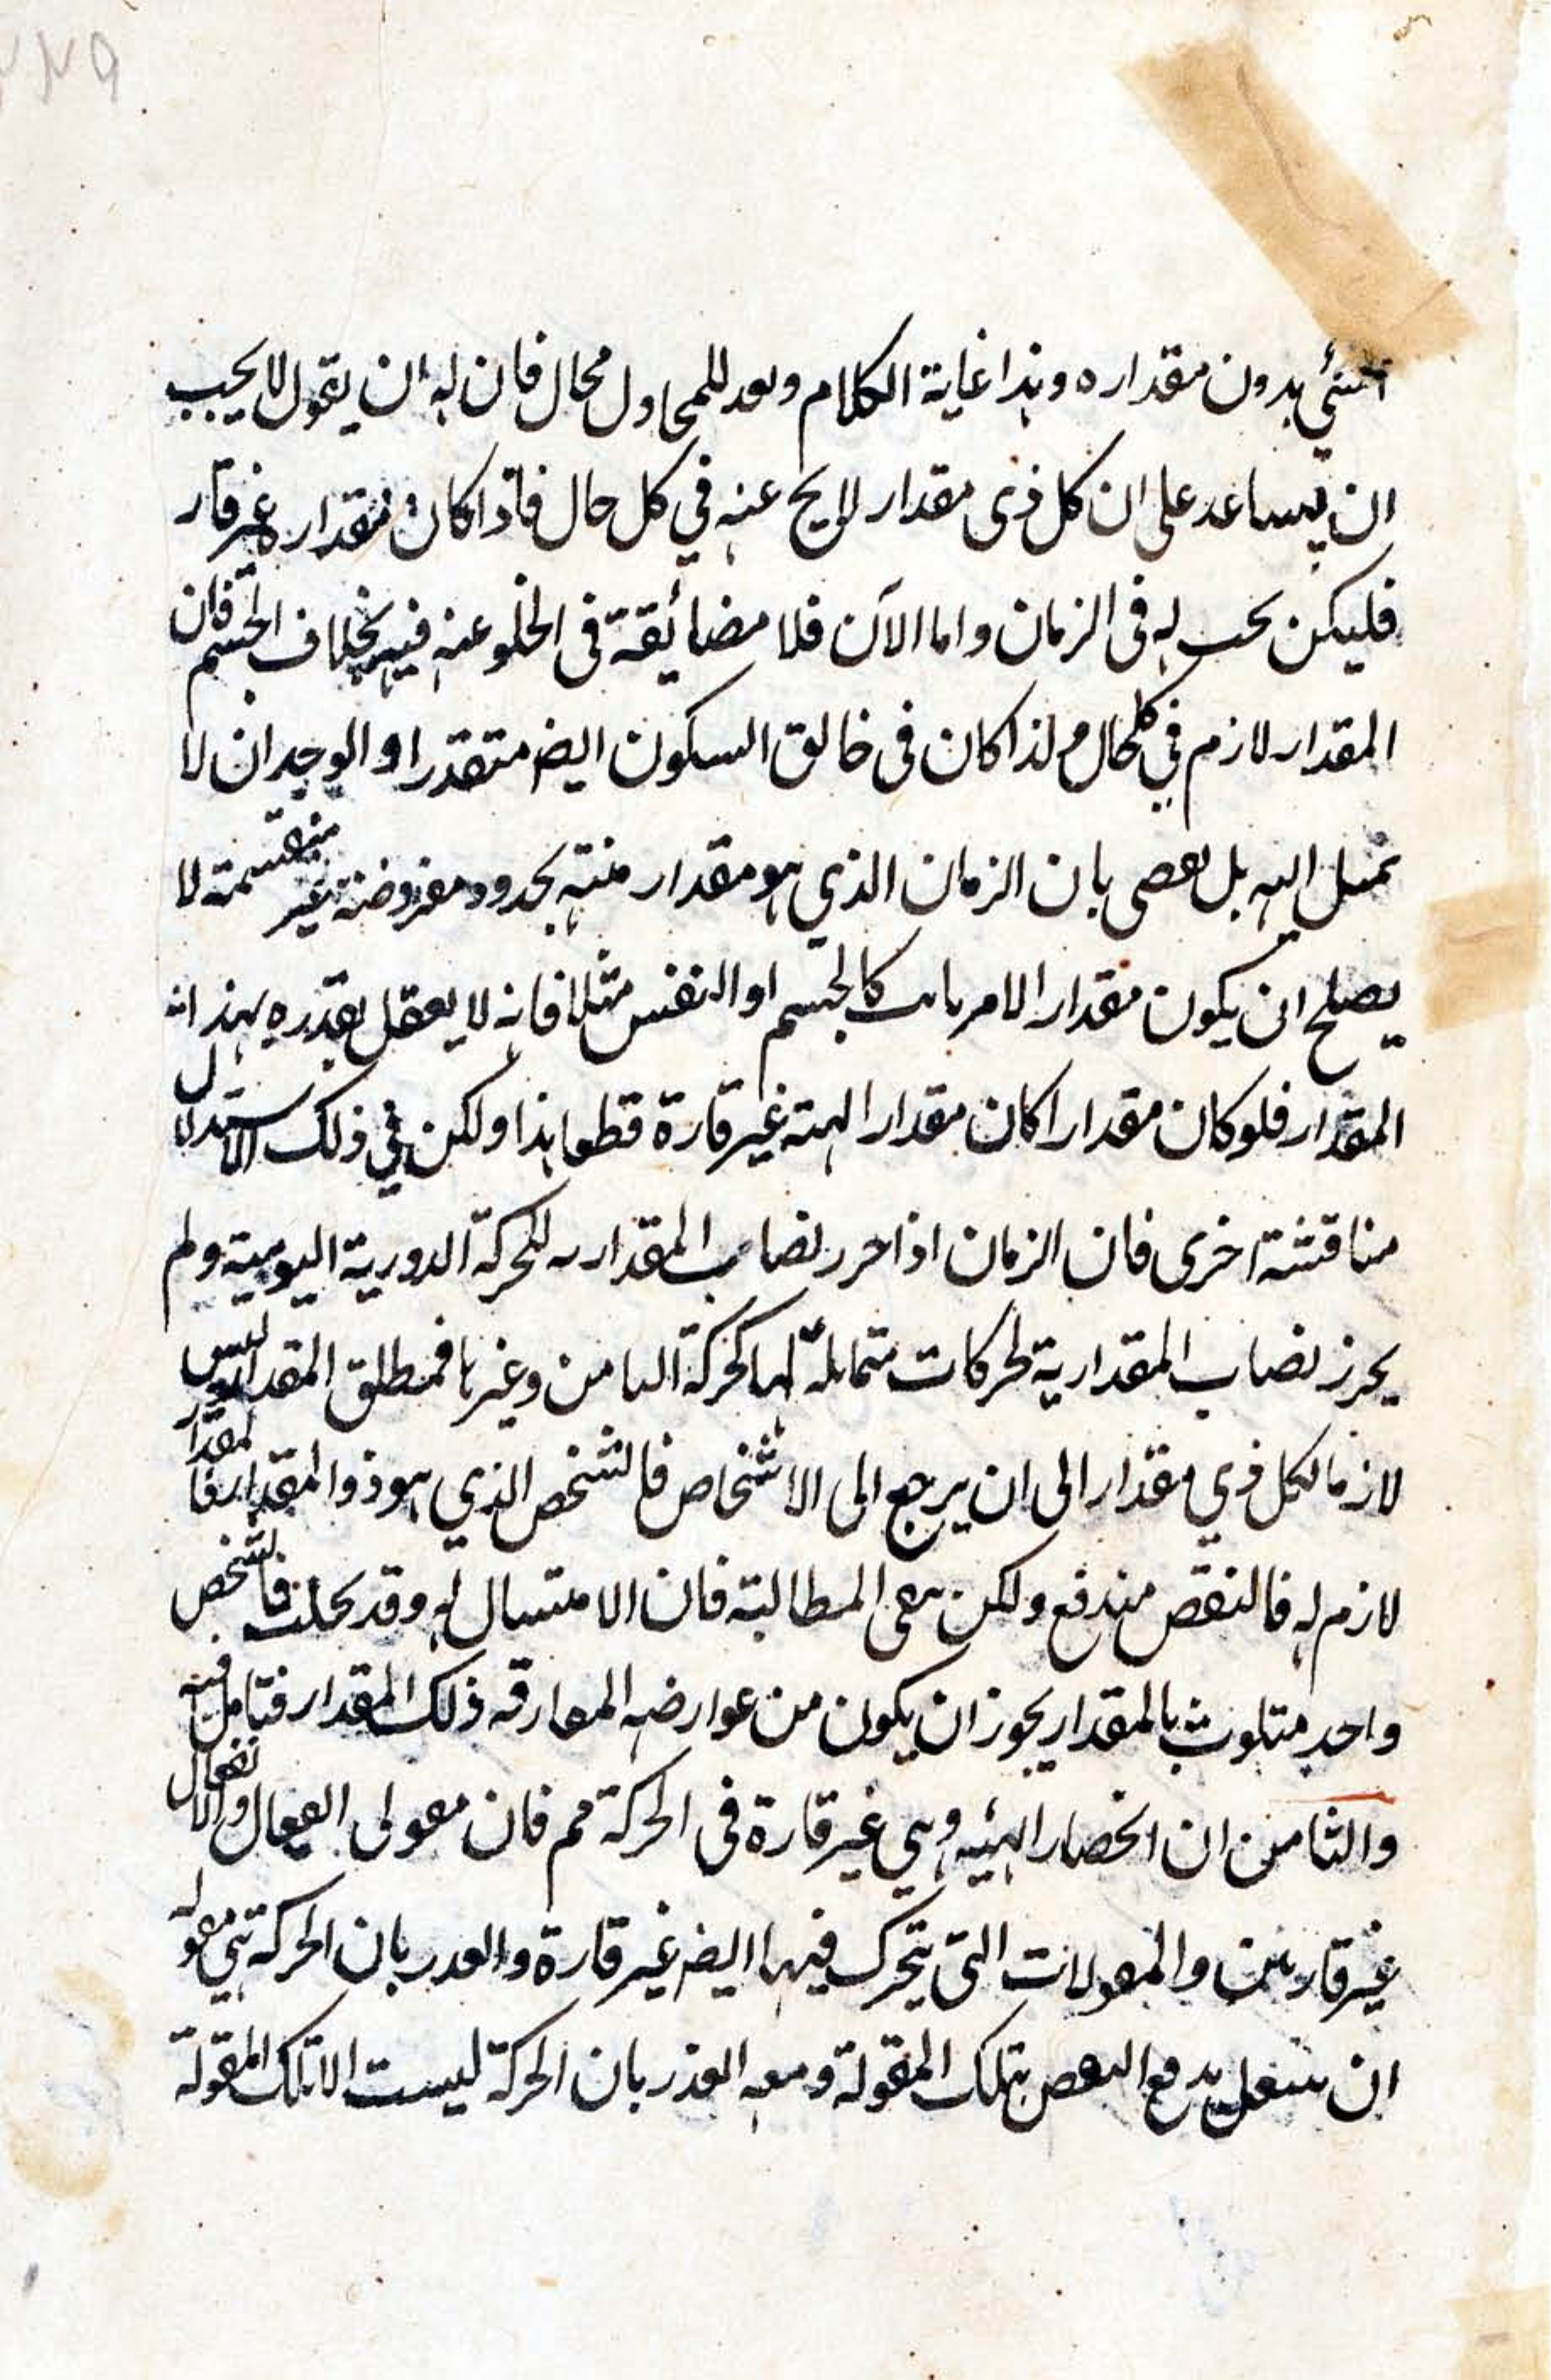 الشئ بدون مقداره وهذا غاية الكلام وبعد للمجادل مجال فان له ان يقول لا يجب
ان يساعد على ان كل ذى مقدار لا يخ عنه في كل حال فاذا كان مقداره غير قار
فليكن بحسبه فى الزمان واما الآن فلا مضائقة فى الخلو عنه فيه بخلاف الجسم فان
المقدار لازم في كل حال ولذا كان فى السكون ايضا متقدرا و الوجدان لا
اليه بل بان الزمان الذي هو مقدار منته بحدود مفروضة غير منقسمة لا
يصلح ان يكون مقدار الامر ثابت كالجسم او النفس مثلا فانه لا يعقل تقدره بهذا
المقدار فلو كان مقدارا كان مقدار الهيئة غير قارة قطعا هذا ولكن في ذلك الاستدلال
مناقشة اخرى فان الزمان اذا احرز نصاب المقدارية للحركة الدورية اليومية ولم
يحرز نصاب المقدارية لحركات متماثلة لها كحركة الثامن وغيرها فمطلق المقدار ليس
لازما لكل ذي مقدار الى ان يرجع الى الاشخاص فالشخص الذي هو ذو المقدار فالمقدار
لازم له فالنقض مندفع ولكن بقى المطالبة فان له وقد فالشخص
واحد متلوث بالمقدار يجوز ان يكون من عوارضه المفارقة ذلك المقدار فتامل فيه
والثامن ان انحصار الهيئة وهي غير قارة فى الحركة مم فان مقولى الفعال والانفعال
غير قارتين والمقولات التى يتحرك فيها ايضا غير قارة والعذر بان الحركة هي مقولة
ان ينفعل يدفع النقض بتلك المقولة ومعه العذر بان الحركة ليست الا تلك المقولة